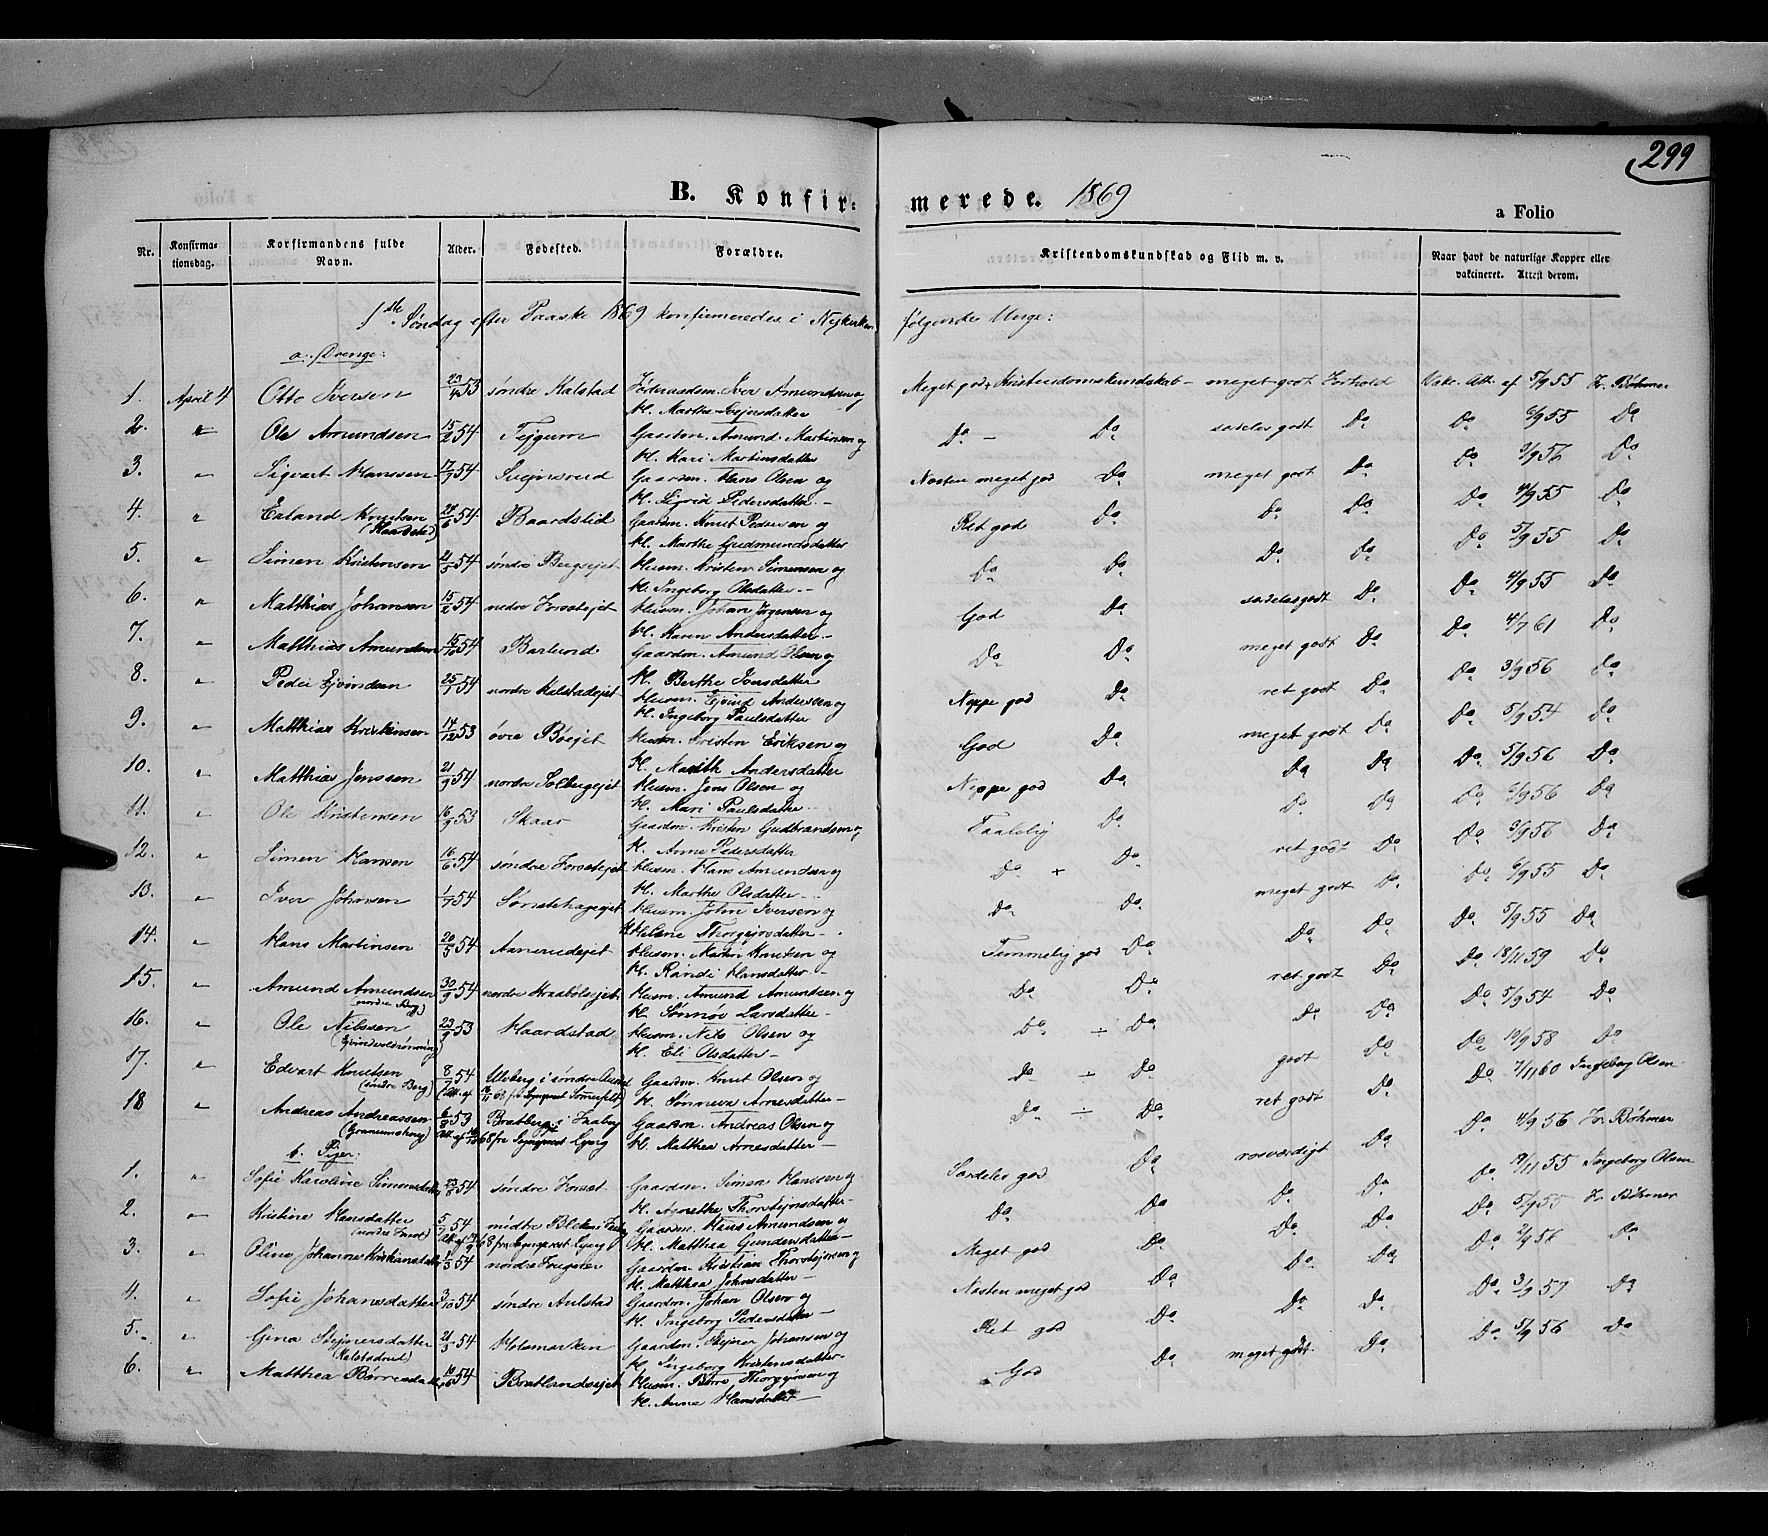 299
B. Konfirmerede. 1869
a Folio
Nr. Konfirmationsdag. Korfirmandens fulde Navn. Alder. Fødested. Forældre. Kristendomskundskad og Flid m. v. Naar havt de naturlige Kopper eller vakcineret. Attest derom.
1ste Søndag efter Paaske 1869 konfirmeredes i Nykirken følgende Unge:
a. Drenge:
1. April 4 Otto Iversen 23/4 53 søndre Kalstad Iver Amundsen og Meget god Kristendomskundskab - meget godt Forhold Vakc. Att. af 5/9 55 Fr. Bøhmer
K. Marthe Svejnsdatter
2. " Ole Amundsen 15/2 54 Fejgum Gaardm. Amund Martinsen og Do - Do særdeles godt Do Do 6/9 55 Do
K. Kari Martinsdatter
3. " Sigvart Hanssen 17/9 54 Svejnsrud Gaardm. Hans Olsen og Næsten meget god Do meget godt Do Do 3/9 56 Do
K. Sigrid Pedersdatter -
4. " Erland Knutsen 24/6 54 Baardslid Gaardm. Knut Pedersen og Ret god Do Do Do Do 4/9 55 Do
(Haardstad) K. Marthe Gudmundsdatter
5. " Simen Kristensen 21/5 54 søndre Bergsejet Husm. Kristen Simensen og Do Do Do Do Do 5/9 55 Do
K. Ingeborg Olsdatter -
6. " Matthias Johansen 15/2 54 nedre Forsetejet Husm. Johan Jørgensen og God Do særdeles godt Do Do 4/9 55 Do
K. Karen Andersdatter -
7. " Matthias Amundsen 15/10 54 Barlund Gaardm. Amund Olsen og Do Do meget godt Do Do 4/7 61 Do
K. Berthe Iversdatter
8. " Peder Ejvindsen 25/1 54 nordre Kalstadejet Husm. Ejvind Anderssen og Neppe god Do ret godt Do Do 3/9 56 Do
K. Ingeborg Paulsdatter
9. " Matthias Kristensen 14/12 53 øvre Bøejet Husm. Kristen Eriksen og God Do meget godt Do Do 5/9 54 Do
K. Marith Andersdatter
10. " Matthias Jenssen 21/9 54 nordre Solbergejet Husm. Jens Olsen og Neppe god Do Do Do Do 5/9 56 Do
K. Mari Paulsdatter -
11. " Ole Kristensen 16/9 53 Skaar Gaardm. Kristen Gudbrandsen og Taalelig Do Do Do Do 6/9 56 Do
K. Anne Pedersdatter
12. " Simen Hansen 16/6 54 søndre Forsetejet Husm. Hans Amundsen og Do + Do ret godt Do Do 3/9 56 Do
K. Marthe Olsdatter -
13. " Iver Johnsen 1/7 54 Sønstehageejet Husm. John Iversen og Do Do meget godt Do Do 6/9 55 Do
K. Helene Thorgejrsdatter -
14. " Hans Martinsen 20/5 54 Aanerudejet Husm. Martin Knutsen og Temmelig god Do Do Do Do 5/9 55 Do
K. Randi Hansdatter -
15. " Amund Amundsen 30/9 54 nordre Skaabølsejet Husm. Amund Amundsen og Do Do ret godt Do Do 18/11 59 Do
(nordre Berg) K. Sønnøv Larsdatter -
16. " Ole Nilssen 22/9 53 Haardstad Husm. Nils Olsen og Do ÷ Do Do Do Do 5/9 54 Do
K. Eli Olsdatter -
17. " Edvart Knutsen 8/7 54 Ulvberg i søndre Gaardm. Knut Olsen og Do ÷ Do godt Do Do 10/9 58 Do
(søndre Berg) K. Sønneva Arnesdatter -
18 " Andreas Andreassen 6/8 53 Bratberg i Faaberg Gaardm. Andreas Olsen og Do ÷ Do ret godt Do Do 7/11 60 Ingeborg Olsen
K. Matthea Arnesdatter -
b. Piger:
1. " Sofie Karoline Simensdatter 23/8 54 søndre Forset Gaardm. Simen Hanssen og Særdeles god Do rosværdigt Do Do 4/9 56 Fr. Bøhmer
K. Agnethe Thorstejnsdatter -
2. " Kristine Hansdatter 5/7 54 midtre Gaardm. Hans Amundsen og Do Do Do Do Do 19/11 55 Ingeborg Olsen
K. Matthea Gundersdatter -
3. " Oline Johanne Kristiansdatter 1/5 54 nordre Frugner Gaardm. Kristian Thorstejnsen og Meget god Do Do Do Do 5/9 55 Fr. Bøhmer
K. Matthea Johnsdatter -
4. " Sofie Johansdatter 3/10 54 søndre Aulstad Gaardm. Johan Olsen og Næsten meget god Do Do Do Do 2/9 56 Do
K. Ingeborg Pedersdatter -
5. " Gina Stejnersdatter 21/3 54 Holsmarken Gaardm. Stejner Johansen og Ret god Do Do Do Do 3/9 57 Do
(Kalstadrud) K. Ingeborg Kristensdatter -
6. " Matthea Børresdatter 10/6 54 Bratlandsejet Husm. Børre Thorgejrsen og God Do meget godt Do Do 5/9 56 Do
K. Anne Hansdatter -